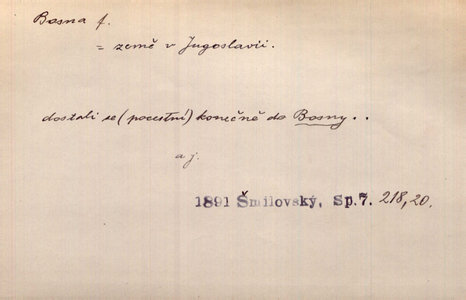 Bosna f.
= země v Jugoslavii.
dostali se (pocestní) konečně do Bosny . .
a j.
1891 Šmilovský, Sp.7. 218,20.